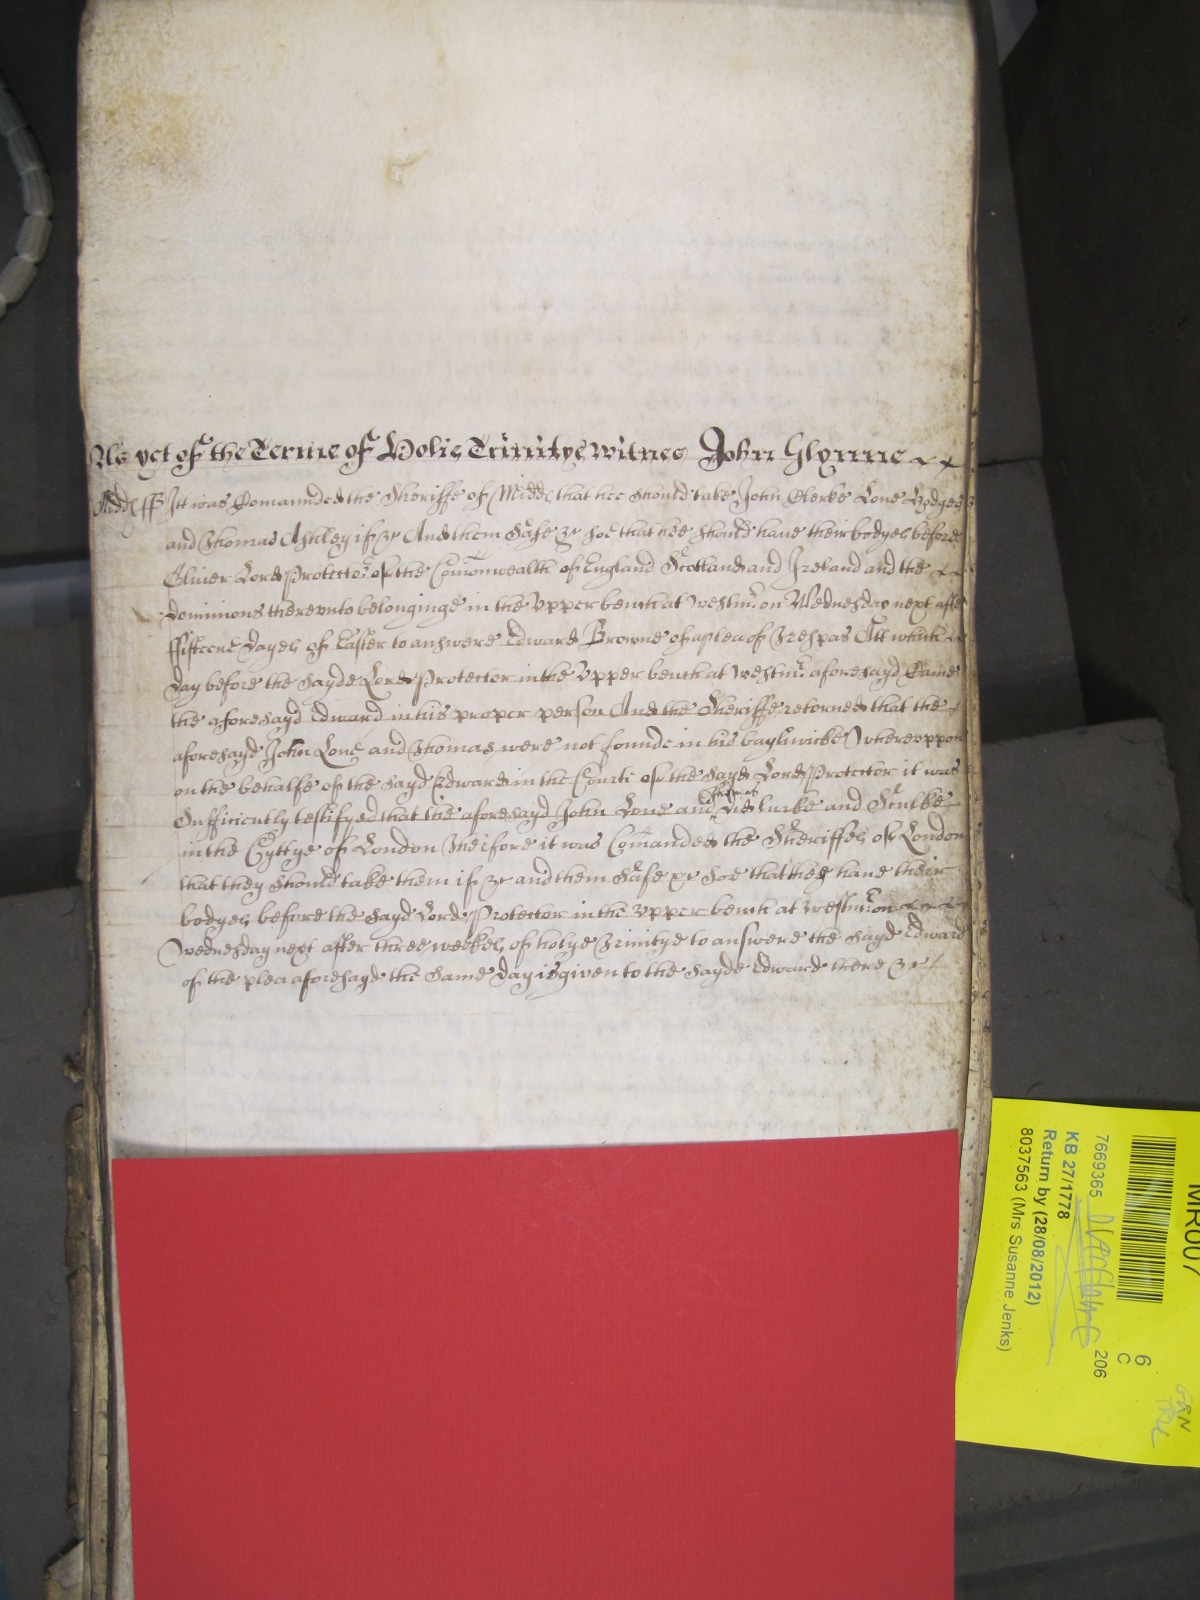 As yet of the Terme of Holie Trinitye witnes John Glynne
Midd ss Itt was Comaunded the Sheriffe of Midd that hee should take John Clerke Lone
and Thomas Ashley if &c And them safe &c soe that hee should have their bodyes before
Oliver Lord Protector of the Comonwealth of England Scotland and Ireland and the
dominions thereunto belonginge in the Upper bench at Westmr on Wednesday next after
ffifteene dayes of Easter to answere Edward Browne of a plea of Trespas Att which
day before the sayde Lord Protector in the Upper bench at Westmr aforesayd Came
the aforesayd Edward in his proper person And the Sheriffe retorned that the
aforesayd John Lone and Thomas were not founde in his baylywicke Whereuppon
on the behalfe of the sayd Edward in the Courte of the sayd Lord Protector it was
Sufficiently testifyed that the aforesayd John Lone and Thomas did lurke and Sculke
in the Cyttye of London Therefore it was Comanded the Sheriffes of London
that they should take them if &c and them safe &c soe that they have their
bodyes before the sayd Lord Protector in the upper bench at Westmr on
Wednesday next after three weekes of holye Trinitye to answere the sayd Edward
of the plea aforesayd the same day is given to the sayde Edward there &c
MR007
6
C
7669365
206
KB 27/1778
Return by (28/08/2012)
8037563 (Mrs Susanne Jenks)